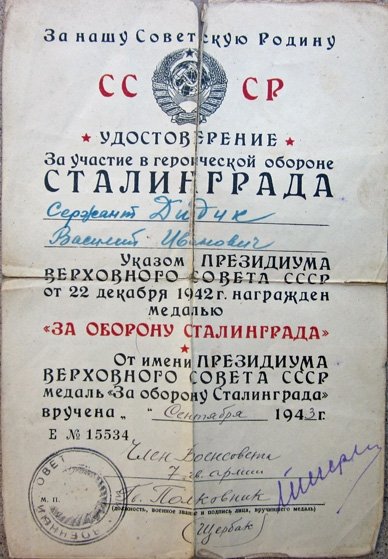 За нашу Советскую Родину
СС СР
УДОСТОВЕРЕНИЕ
За участие в героической обороне
СТАЛИНГРАДА
Сержант Дидик
Василий Иванович
Указом ПРЕЗИДИУМА
ВЕРХОВНОГО СОВЕТА СССР
от 22 декабря 1942 г. награжден
медалью
«ЗА ОБОРОНУ СТАЛИНГРАДА»
От имени ПРЕЗИДИУМА
ВЕРХОВНОГО СОВЕТА СССР
медаль «За оборону Сталинграда»
вручена „ “ Сентября 1943 г.
Е № 15534
Член Военсовета
7 гв. армии
Гв. Полковник
М. П.
(должность, военное звание и подпись лица, вручившего медаль)
(Щербак)
ВОЕННЫЙ СОВЕТ